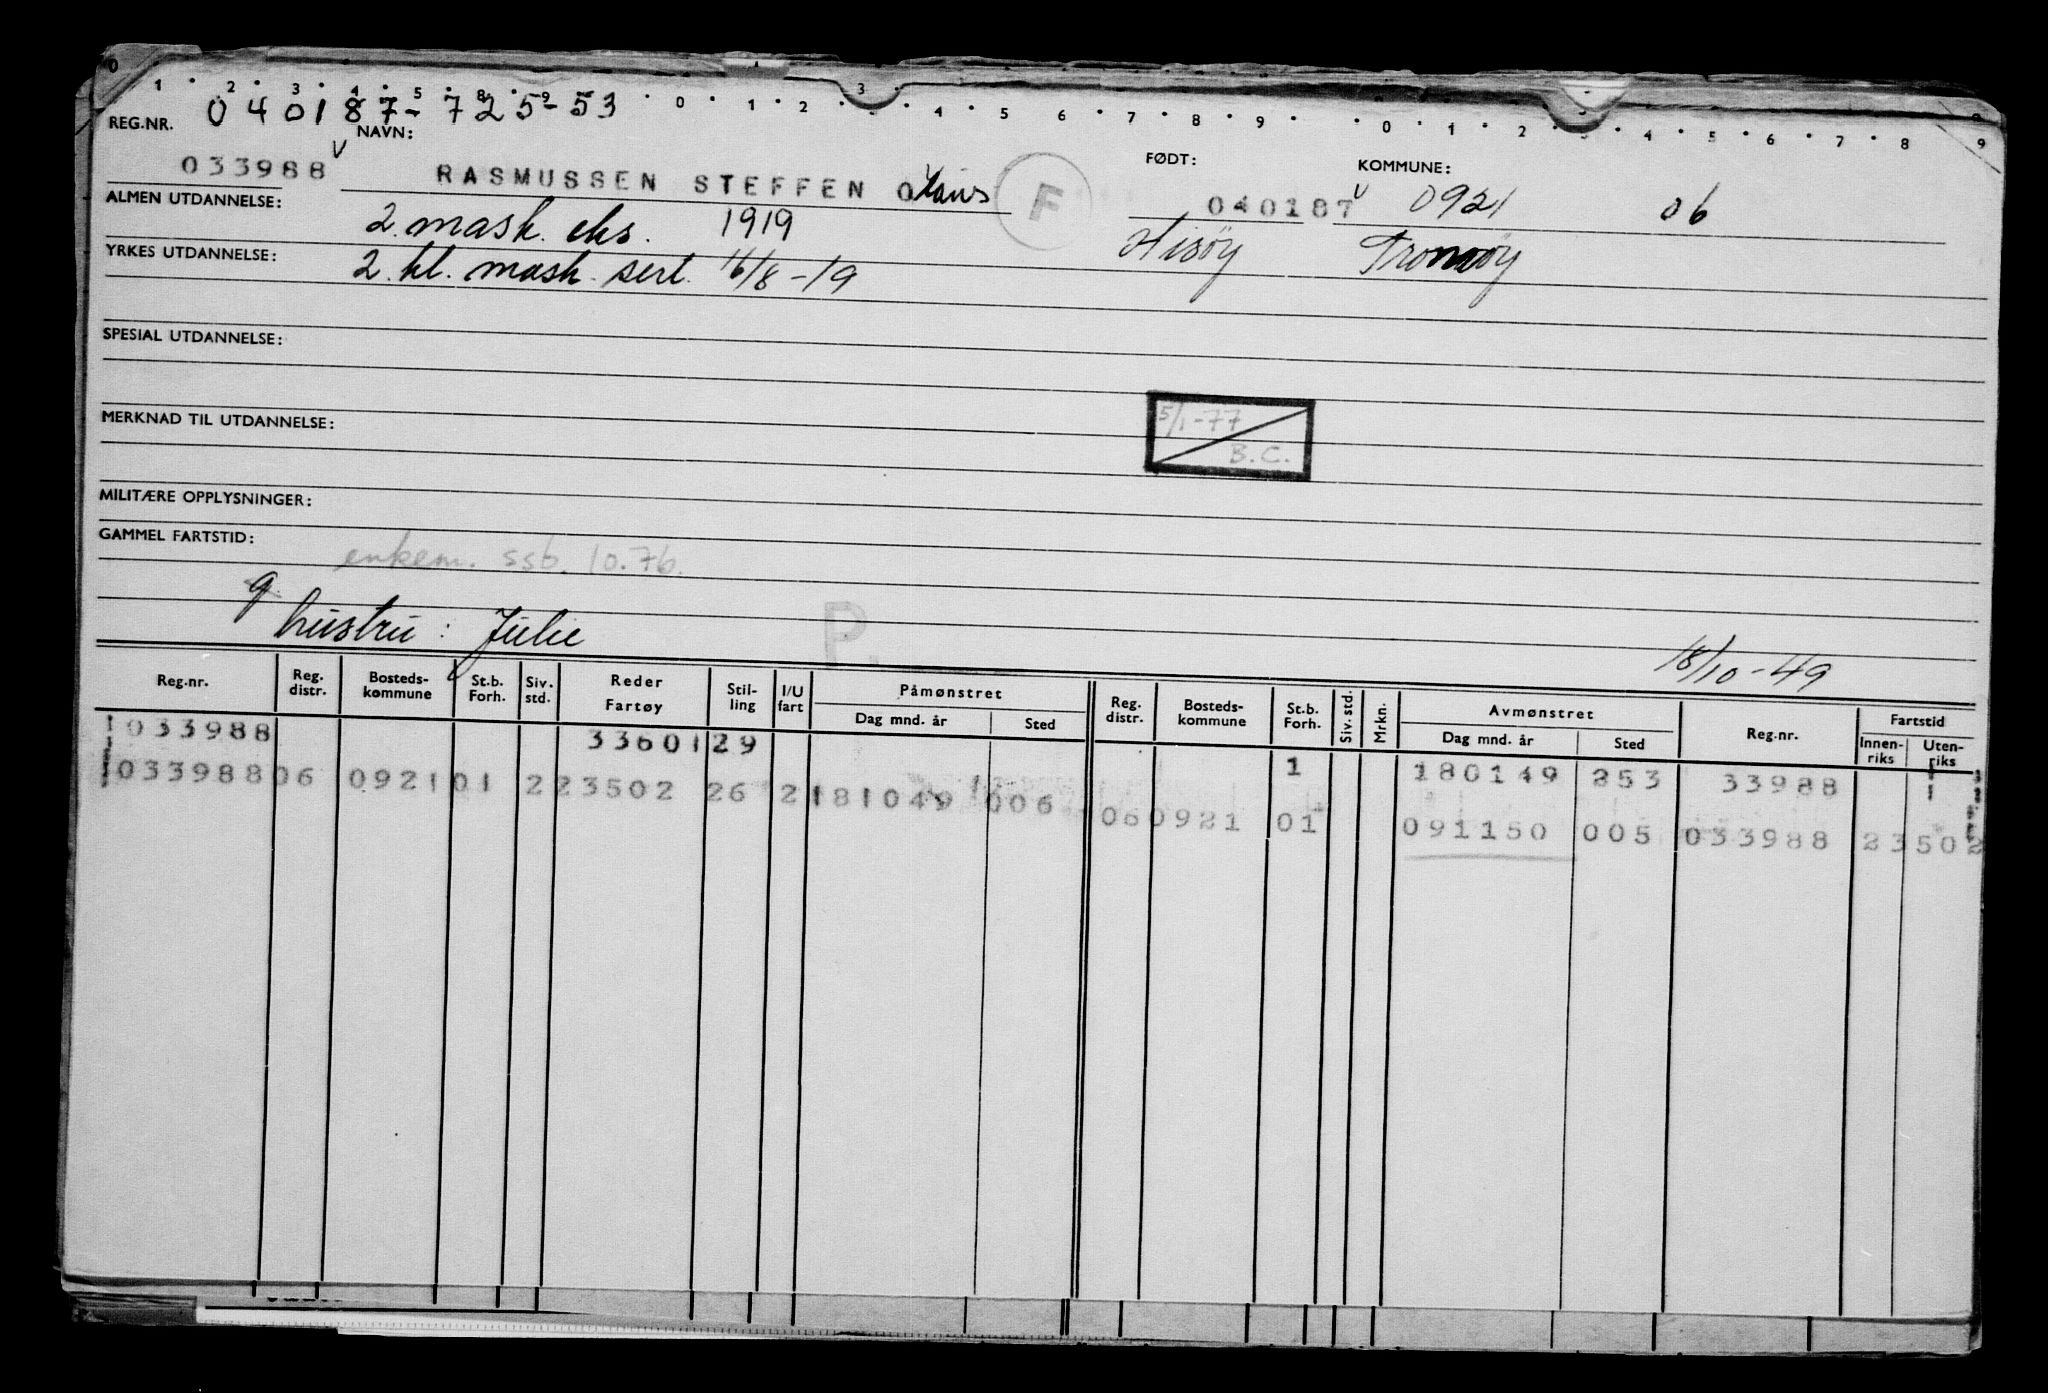 0 1 2 3 4 5 8 9 0 1 2 3 4 5 6 7 8 9 0 1 2 3 4 5 6 7 8 9
040187-725-53
REG.NR. NAVN: FØDT: KOMMUNE:
033988 v RASMUSSEN STEFFEN F 040187 v 0921 06
ALMEN UTDANNELSE: 2. mask. eks. 1919 Hisöy Tromöy
YRKES UTDANNELSE: 2. kl. mask. sert. 16/8-19
SPESIAL UTDANNELSE:
MERKNAD TIL UTDANNELSE: 5/1-77
B.C.
MILITÆRE OPPLYSNINGER:
GAMMEL FARTSTID: enkem. ssb. 10.76.
g. hustru: Julie P. 18/10-49
Reg.nr. Reg. distr. Bosteds-kommune St.b. Forh. Siv. std. Reder Fartøy Stil-ling I/U fart Påmønstret Dag mnd. år Sted Reg. distr. Bosteds-kommune St.b. Forh. Siv. std. Mrkn. Avmønstret Dag mnd. år Sted Reg.nr. Fartstid Innen-riks Uten-riks
033988 3360129 1 180149 253 33988
033988 06 0921 01 2 23502 26 2 181049 006 06 0921 01 091150 005 033988 23502